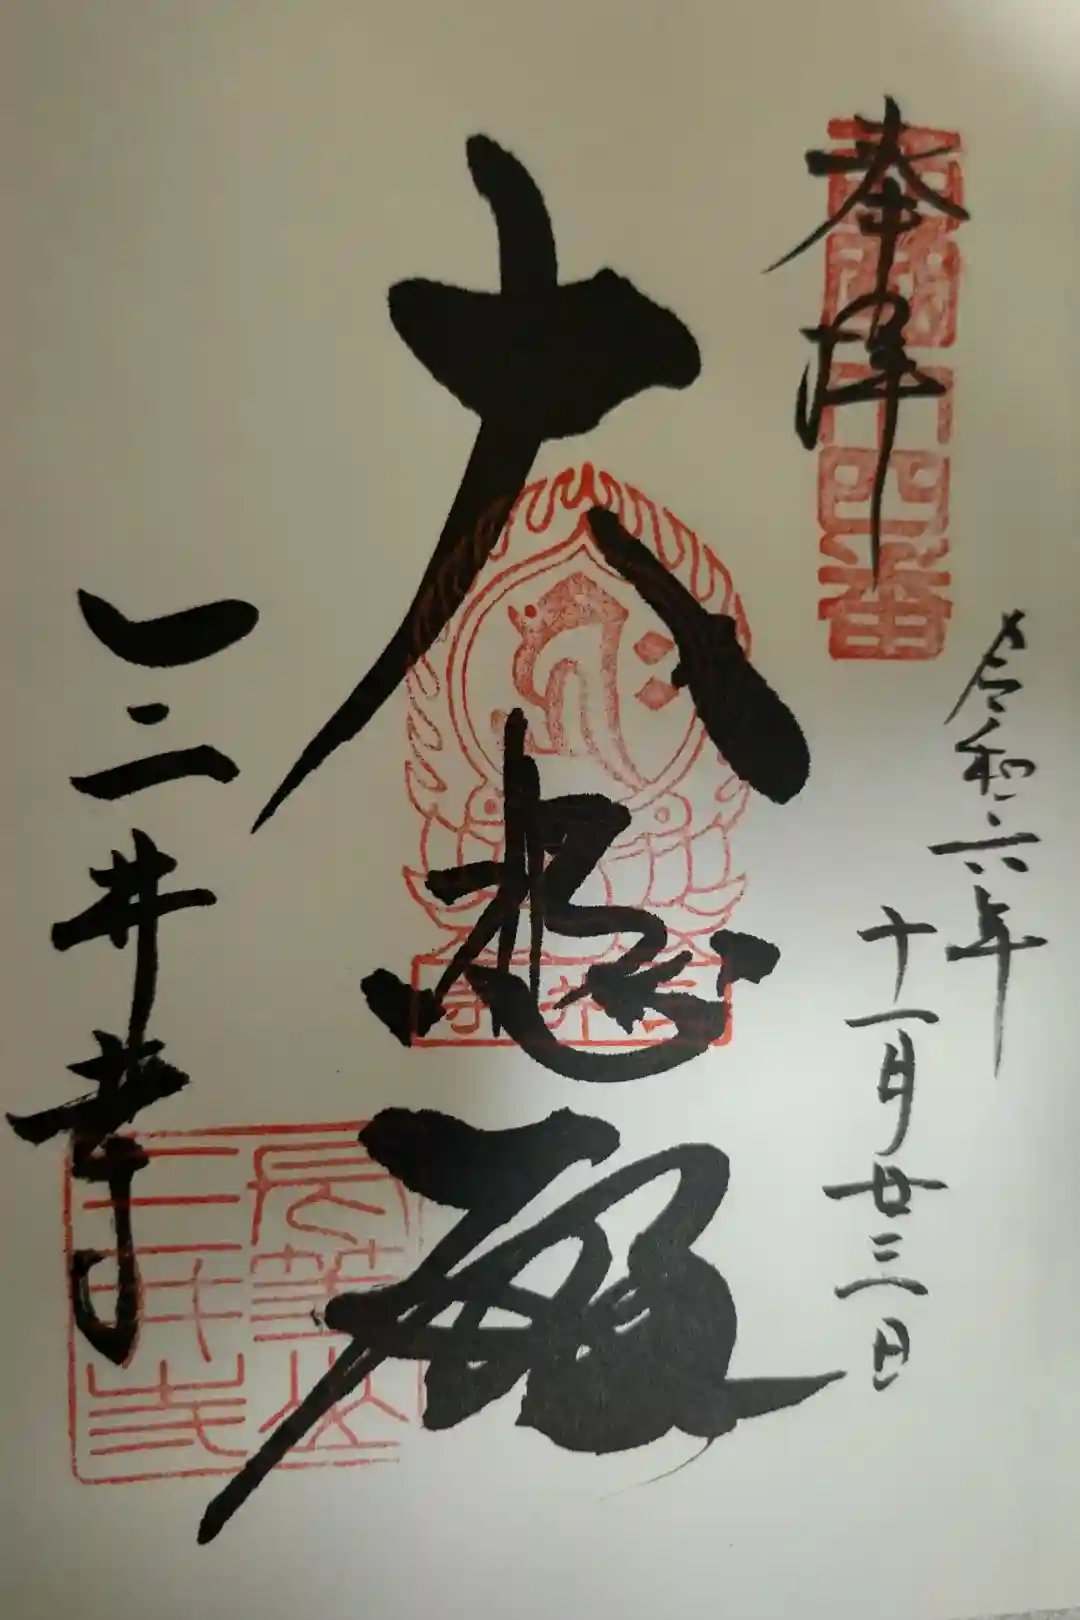 奉拝
西國十四番
令和六年
十一月廿三日
大悲殿
三井寺
三井寺
長等山
三井寺